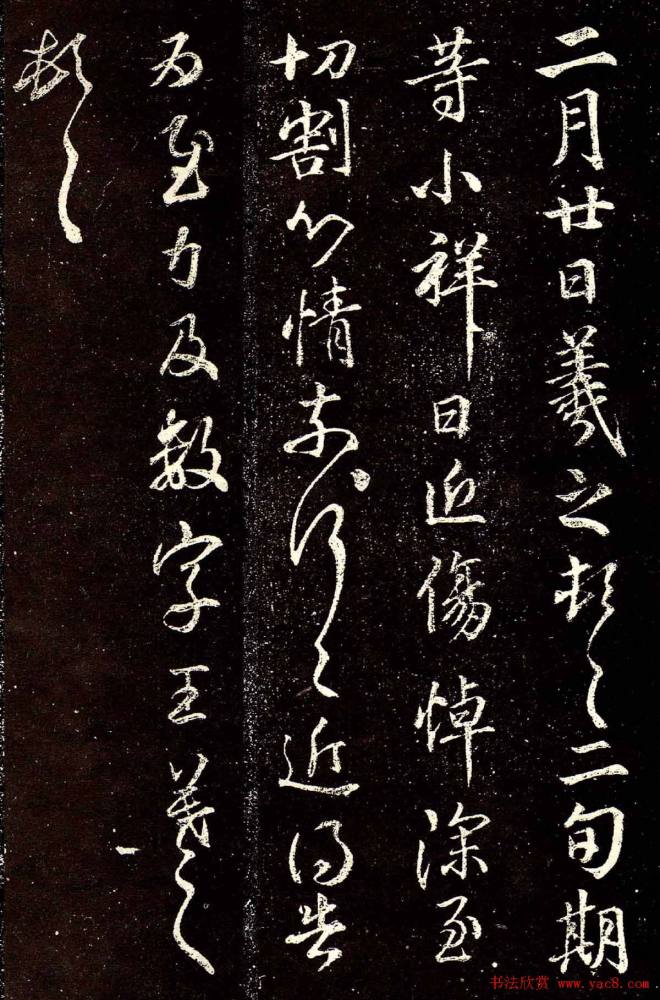 二月廿日羲之頓首二旬期
等小祥日近傷悼深至
切割心情奈何〻近得告
為慰力及數字王羲之
頓首
书法欣赏 www.yac8.com